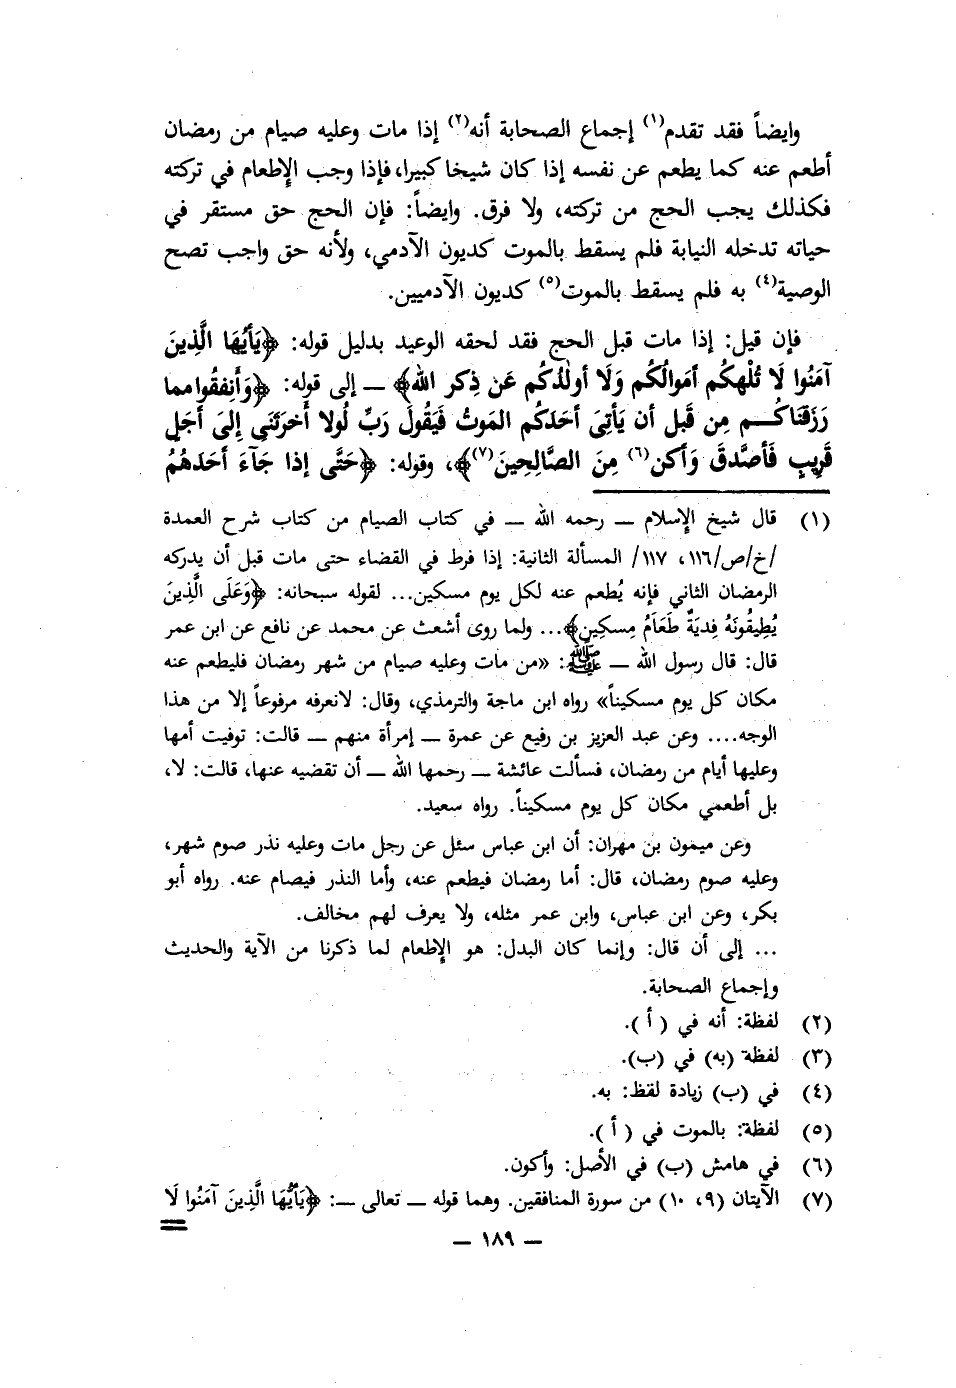 وايضاً فقد تقدم(١) إجماع الصحابة أنه(٢) إذا مات وعليه صيام من رمضان
أطعم عنه كما يطعم عن نفسه إذا كان شيخا كبيرا، فإذا وجب الإطعام في تركته
فكذلك يجب الحج من تركته، ولا فرق. وايضاً: فإن الحج حق مستقر في
حياته تدخله النيابة فلم يسقط بالموت كديون الآدمي، ولأنه حق واجب تصح
الوصية(٤) به فلم يسقط بالموت(٥) كديون الآدميين.
فإن قيل: إذا مات قبل الحج فقد لحقه الوعيد بدليل قوله: ﴿يَأيُهَا الَّذِينَ
آمَنُوا لَا تُلْهِكُم أَموَالُكُم وَلَا أولٰدُكُم عَن ذِكر الله﴾ ــ إلى قوله: ﴿وَأَنفِقُوا مما
رَزَقنَاكُــم مِن قَبلِ أن يَأتِىَ أحَدَكُم المَوتُ فَيَقُولَ رَبِّ لَولا أخرَتَنِى إلىَ أَجَلٍ
قَرِيبٍ فَأصَّدقَ وَأكن(٦) مِنَ الصَّالِحِينَ(٧)﴾، وقوله: ﴿حَتَّى إذا جَآءَ أحَدَهُمُ
(١) قال شيخ الإسلام ــ رحمه الله ــ في كتاب الصيام من كتاب شرح العمدة
/خ/ص/١١٦، ١١٧/ المسألة الثانية: إذا فرط في القضاء حتى مات قبل أن يدركه
الرمضان الثاني فإنه يُطعم عنه لكل يوم مسكين... لقوله سبحانه: ﴿وَعَلَى الَّذِينَ
يُطِيقُونَهُ فِديَةٌ طَعَامُ مِسكِينٍ﴾... ولما روى أشعث عن محمد عن نافع عن ابن عمر
قال: قال رسول الله ــ ﷺ: «من مات وعليه صيام من شهر رمضان فليطعم عنه
مكان كل يوم مسكيناً» رواه ابن ماجة والترمذي، وقال: لانعرفه مرفوعاً إلا من هذا
الوجه.... وعن عبد العزيز بن رفيع عن عمرة ــ إمرأة منهم ــ قالت: توفيت أمها
وعليها أيام من رمضان، فسألت عائشة ــ رحمها الله ــ أن تقضيه عنها، قالت: لا،
بل أطعمي مكان كل يوم مسكيناً. رواه سعيد.
وعن ميمون بن مهران: أن ابن عباس سئل عن رجل مات وعليه نذر صوم شهر،
وعليه صوم رمضان، قال: أما رمضان فيطعم عنه، وأما النذر فيصام عنه. رواه أبو
بكر، وعن ابن عباس، وابن عمر مثله، ولا يعرف لهم مخالف.
... إلى أن قال: وإنما كان البدل: هو الإطعام لما ذكرنا من الآية والحديث
وإجماع الصحابة.
(٢) لفظة: أنه في ( أ ).
(٣) لفظة (به) في (ب).
(٤) في (ب) زيادة لفظ: به.
(٥) لفظة: بالموت في ( أ ).
(٦) في هامش (ب) في الأصل: وأكون.
(٧) الآيتان (٩، ١٠) من سورة المنافقين. وهما قوله ــ تعالى ــ: ﴿يَأَيُّهَا الَّذِينَ آمَنُوا لَا
ــ ١٨٩ ــ